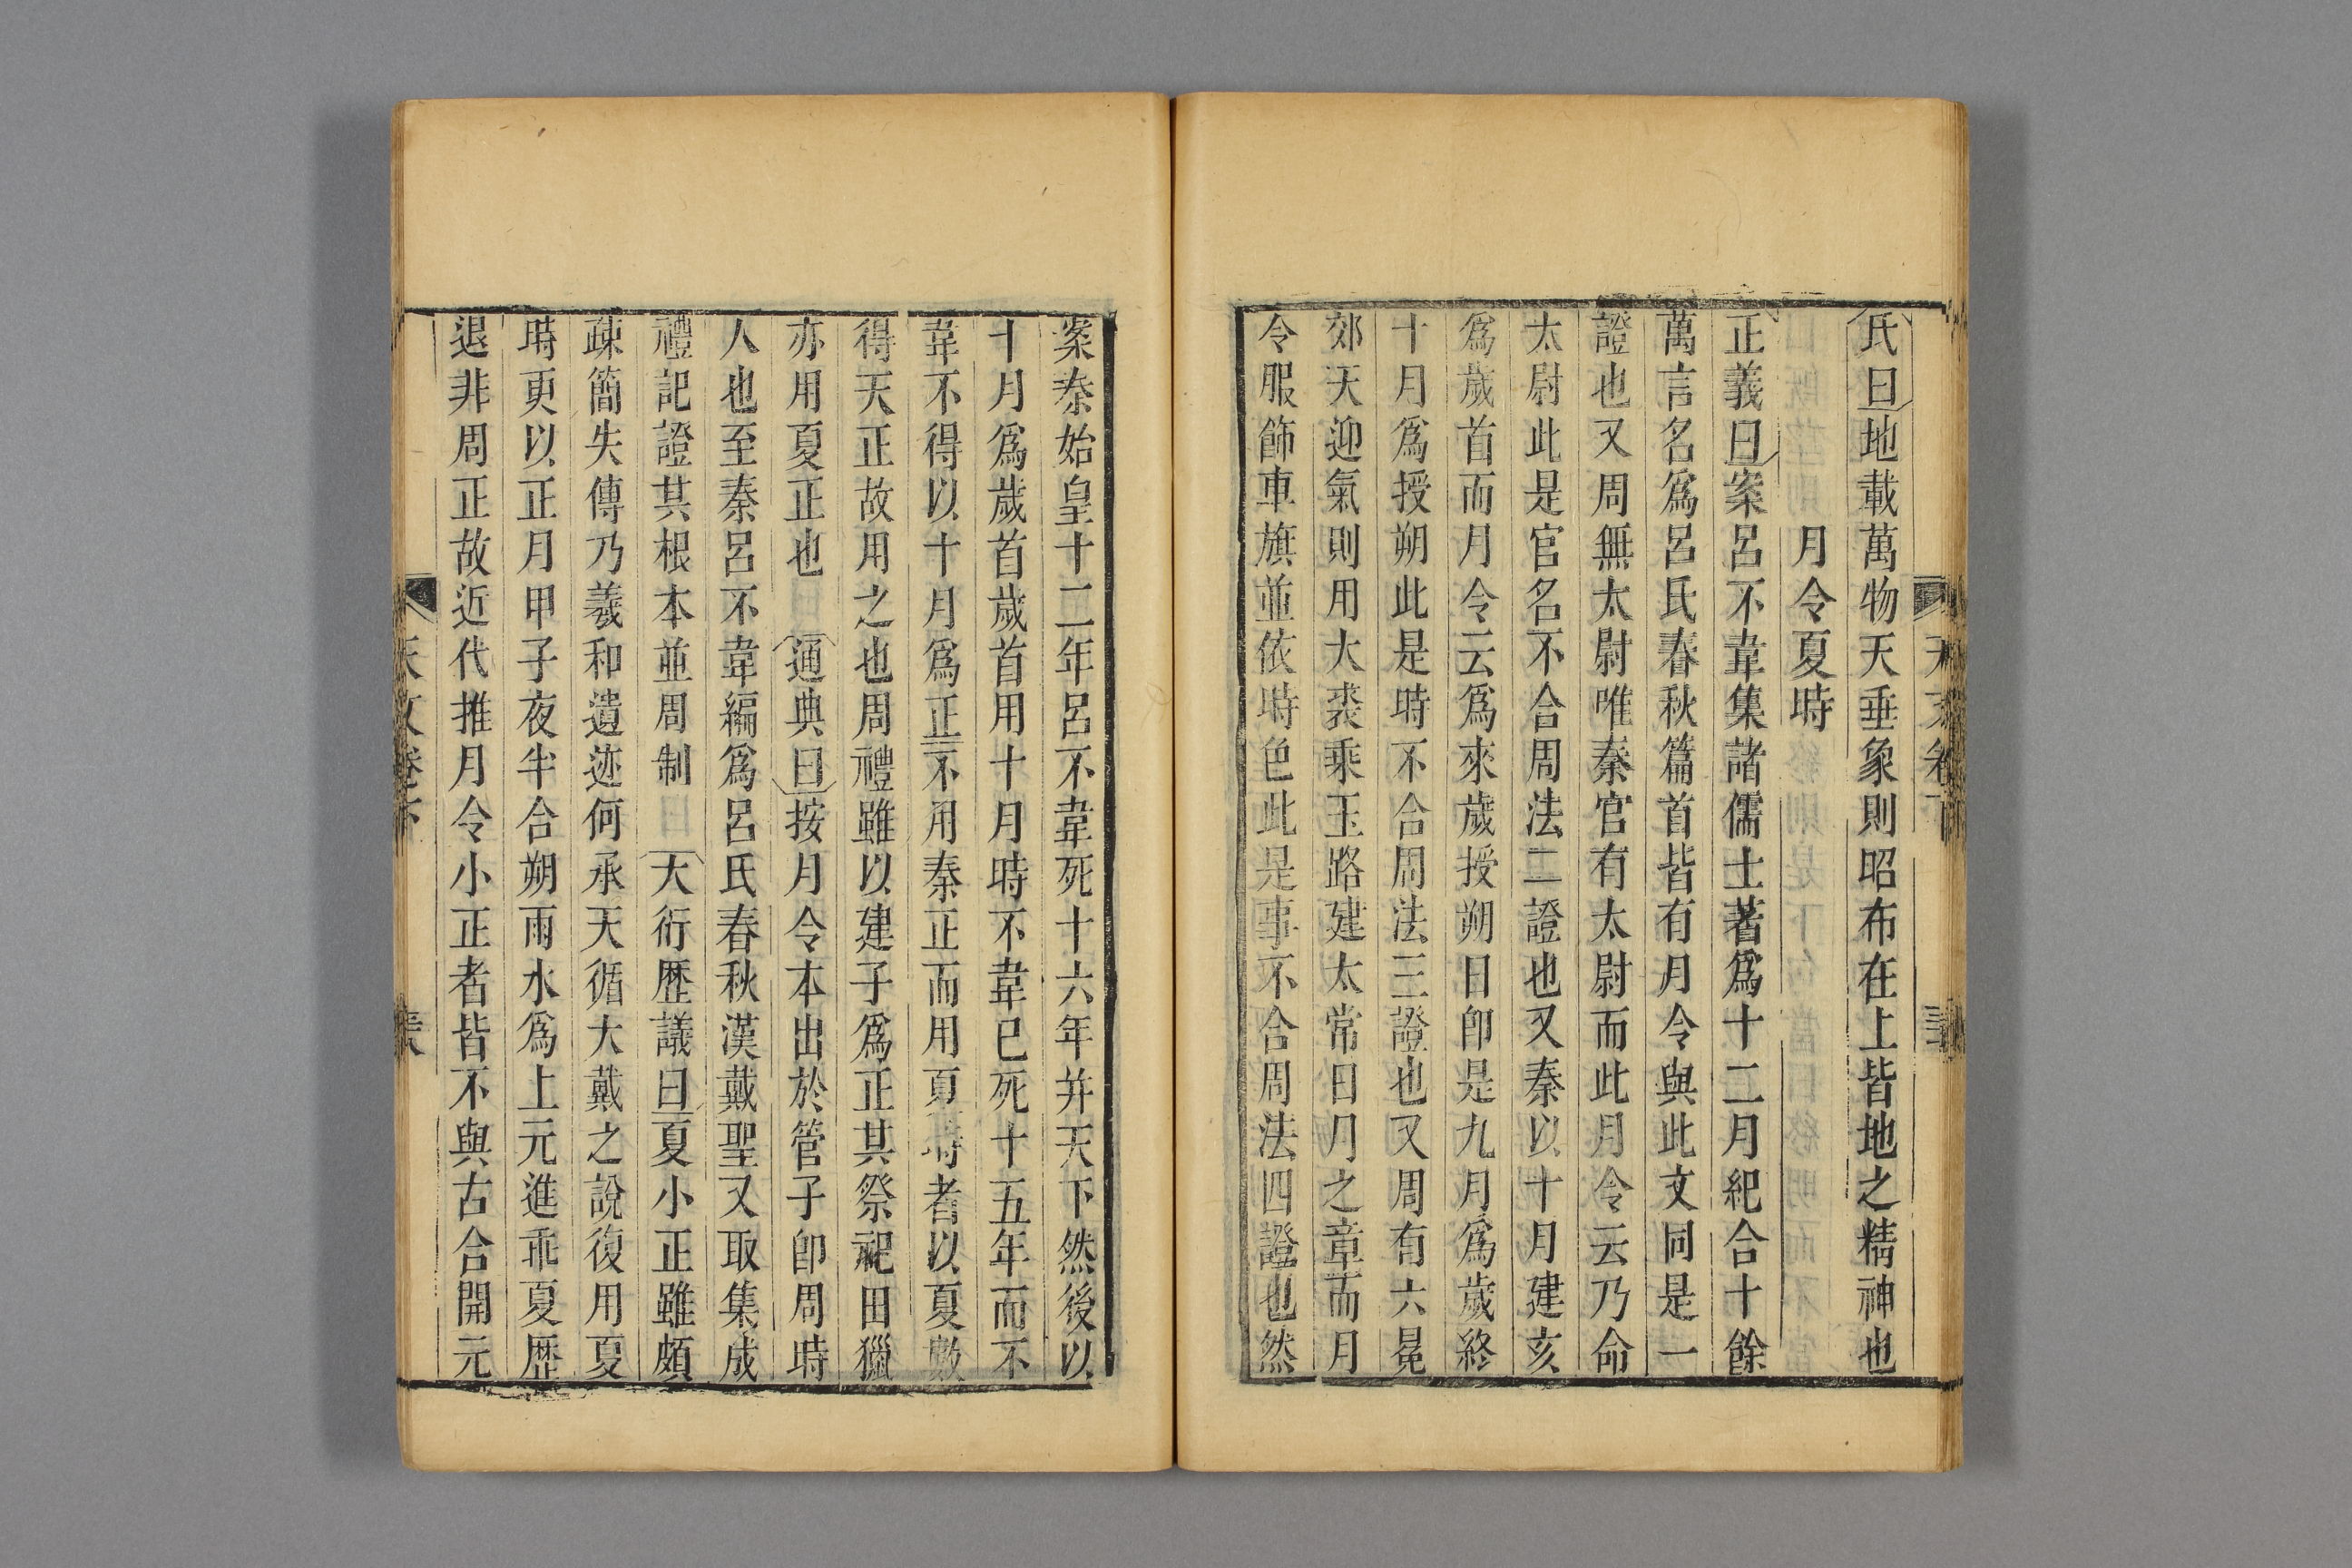 氏曰地載萬物天垂象則昭布在上皆地之精神也
月令夏時
正義曰案呂不韋集諸儒士著爲十二月紀合十餘
萬言名爲呂氏春秋篇首皆有月令與此文同是一
證也又周無太尉唯秦官有太尉而此月令云乃命
太尉此是官名不合周法二證也又秦以十月建亥
爲歲首而月令云爲來歲授朔日卽是九月爲歲終
十月爲授朔此是時不合周法三證也又周有六冕
郊天迎氣則用大裘乘玉路建太常日月之章而月
令服飾車旗並依時色此是事不合周法四證也然
案秦始皇十二年呂不韋死十六年并天下然後以
十月爲歲首歲首用十月時不韋已死十五年而不
韋不得以十月爲正不用秦正而用夏時者以夏數
得天正故用之也周禮雖以建子爲正其祭祀田獵
亦用夏正也 通典曰按月令本出於管子卽周時
人也至秦呂不韋編爲呂氏春秋漢戴聖又取集成
禮記證其根本並周制 大衍歷議曰夏小正雖頗
疎簡失傳乃羲和遺迹何承天循大戴之說復用夏
時更以正月甲子夜半合朔雨水爲上元進乖夏歷
退非周正故近代推月令小正者皆不與古合開元
天文卷下